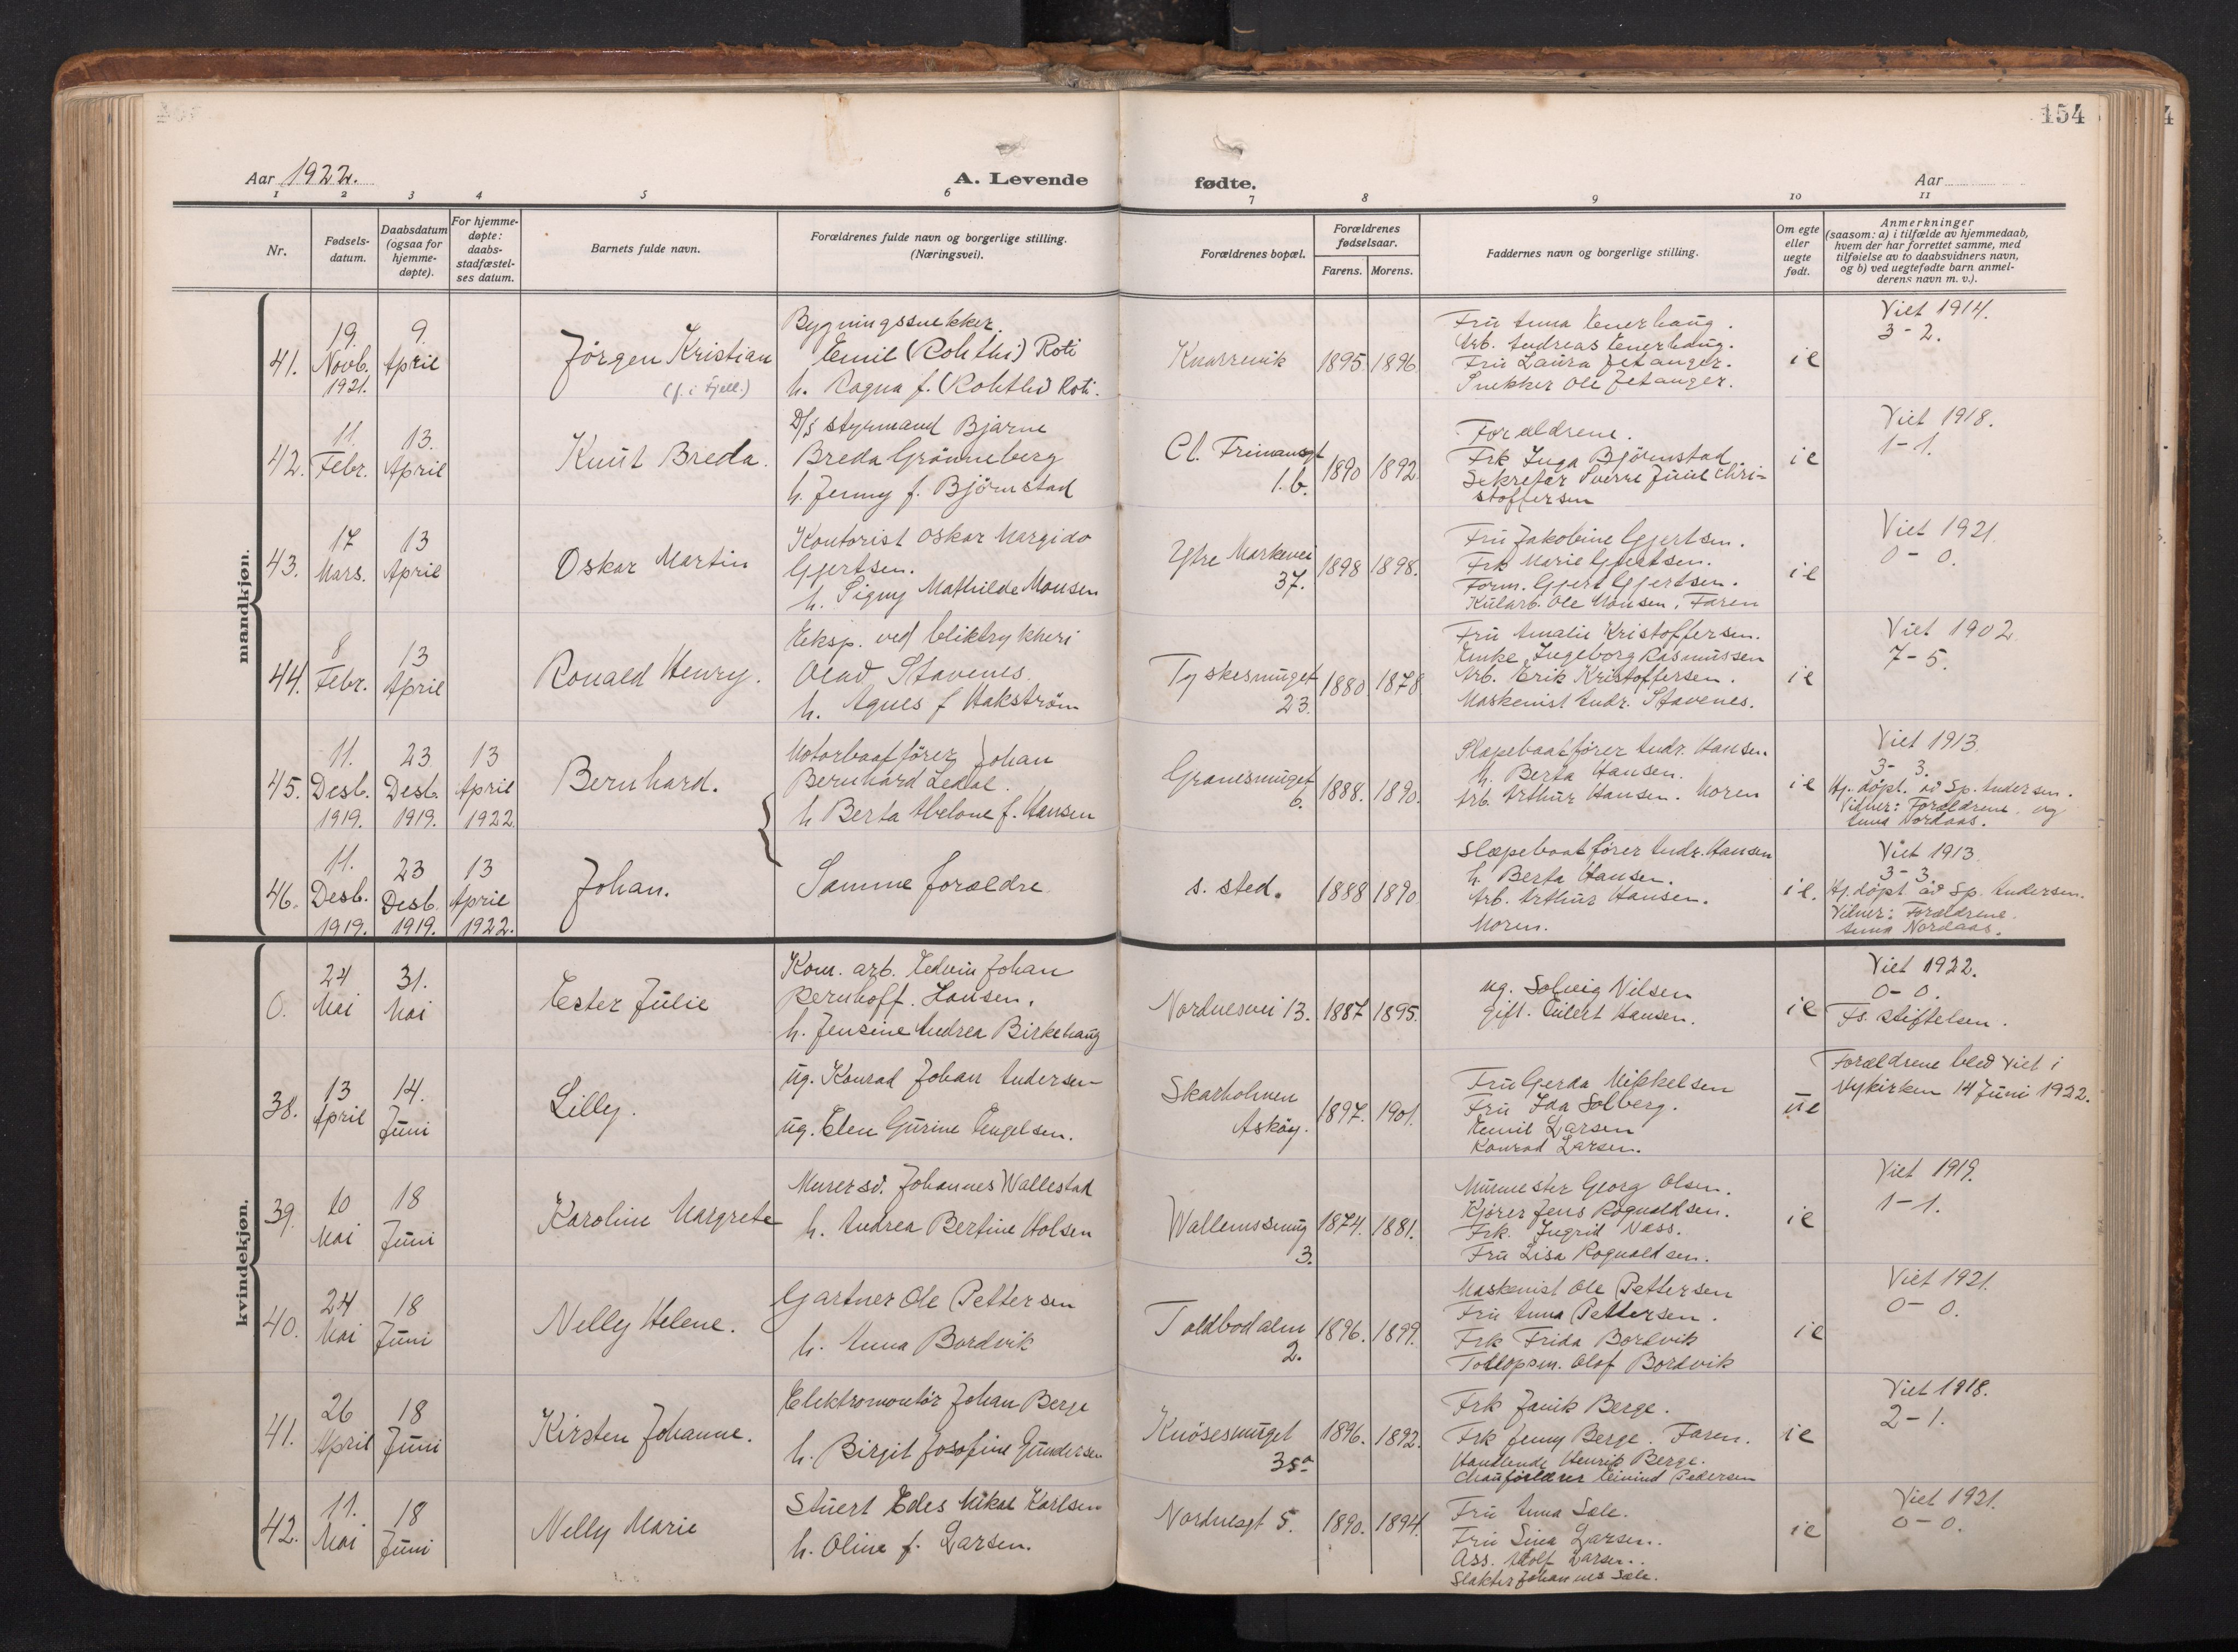 154
Aar 1922.
A. Levende
fødte.
Aar
1 2 3 4 5 6
7 8 9 10 11
Nr.
Fødsels-
datum.
Daabsdatum
(ogsaa for
hjemme-
døpte).
For hjemme-
døpte:
daabs-
stadfæstel-
ses datum.
Barnets fulde navn.
Forældrenes fulde navn og borgerlige stilling.
(Næringsvei).
Forældrenes bopæl.
Forældrenes
fødselsaar.
Farens. Morens.
Faddernes navn og borgerlige stilling.
Om egte
eller
uegte
født.
Anmerkninger
(saasom: a) i tilfælde av hjemmedaab,
hvem der har forrettet samme, med
tilføielse av to daabsvidners navn,
og b) ved uegtefødte barn anmel-
derens navn m. v.).
mandkjøn.
41.
19.
Novb.
1921.
9.
April
Jörgen Kristian
(f. i Fjell.)
Bygningssnekker
Emil (Rohthi) Roti
h. Ragna f. (Rohthi) Roti.
Knarrevik
1895. 1896.
Fru Anna Enerhaug.
Arb. Andreas Enerhaug.
Fru Laura Jetanger.
Snekker Ole Jetanger.
ie
Viet 1914.
3-2.
42.
11.
Febr.
13.
April
Knut Breda.
D/s styrmand Bjarne
Breda Grönneberg
h. Jenny f. Björnstad
Cl. Frimansgt
1.b.
1890 1892
Forældrene.
Frk Inga Björnstad
Sekretær Sverre Juul Chri-
stoffersen
ie
Viet 1918.
1-1.
43.
17
Mars.
13
April
Oskar Martin
Kontorist Oskar Margido
Gjertsen.
h. Signy Mathilde Monsen
Ytre Markevei
37.
1898 1898.
Fru Jakobine Gjertsen.
Frk Marie Gjertsen.
Form. Gjert Gjertsen.
Kularb. Ole Monsen. Faren
ie
Viet 1921.
0-0.
44.
8
Febr.
13
April
Ronald Henry.
Eksp. ved bliktrykkeri
Olad Stavenes.
h. Agnes f Hakström
Tyskesmuget
23.
1880 1878
Fru Amalie Kristoffersen.
Enke Ingeborg Rasmussen
Arb. Erik Kristoffersen.
Maskinist Andr. Stavenes.
ie
Viet 1902
7-5.
45.
11.
Desb.
1919.
23
Desb.
1919.
13
April
1922
Bernhard.
Motorbaatförer Johan
Bernhard Ledal.
h Berta Abelone f. Hansen
Granesmuget
6.
1888. 1890.
Slæpebaatförer Andr. Hansen
h. Berta Hansen.
Arb. Arthur Hansen. Moren
ie
Viet 1913
3-3.
Hj. döpt. av Sp. Andersen.
Vidner: Forældrene og
Anna Nordaas.
46.
11.
Desb.
1919.
23
Desb.
1919.
13
April
1922.
Johan.
Samme forældre
s. sted.
1888 1890
Slæpebaatförer Andr. Hansen
h. Berta Hansen.
Arb. Arthur Hansen.
Moren.
ie.
Viet 1913.
3-3.
Hj. döpt av Sp. Andersen.
Vidner: Forældrene.
Anna Nordaas.
kvindekjøn.
0.
24
Mai
31.
Mai
Ester Julie
Kom. arb. Edvin Johan
Bernhoff. Hansen.
h. Jensine Andrea Birkehaug
Nordnesvei 13.
1887 1895.
ug. Solveig Nilsen
gift. Eilert Hansen.
ie
Viet 1922.
0-0.
Fs. Stiftelsen.
38.
13
April
14.
Juni
Lilly.
ug. Konrad Johan Andersen
ug. Elen Gurine Engelsen.
Skarholmen
Asköy.
1897. 1901.
Fru Gerda Mikkelsen
Fru Ida Solberg.
Emil Larsen
Konrad Larsen.
ue
Forældrene blev viet i
Nykirken 14 Juni 1922.
39.
10
Mai
18
Juni
Karoline Margrete
Murersv. Johannes Wallestad
h. Andrea Bertine Holsen
Wallemssmug
3.
1874. 1881.
Murmester Georg Olsen.
Kjörer Jens Rognaldsen.
Frk. Ingrid Næss.
Fru Lisa Rognaldsen.
ie
Viet 1919.
1-1.
40.
24
Mai
18
Juni
Nelly Helene.
Gartner Ole Pettersen
h. Anna Bordvik
Toldbodalm
2.
1896. 1899.
Maskinist Ole Pettersen
Fru Anna Pettersen.
Frk Frida Bordvik
Toldopsm. Olaf Bordvik
ie
Viet 1921.
0-0.
41.
26
April
18
Juni
Kirsten Johanne.
Elektromontör Johan Berge
h. Birgit Josefine Gundersen
Knösesmuget
35a
1896. 1892.
Frk Janik Berge.
Frk Jenny Berge. Faren.
Handlende Henrik Berge.
Eivind Pedersen
ie
Viet 1918.
2-1.
42.
11.
Mai
18
Juni
Nelly Marie
Stuert Edes Mikal Karlsen
h. Oline f. Larsen.
Nordnesgt 5.
1890. 1894.
Fru Anna Sæle.
Fru Sina Larsen.
Ass. Adolf Larsen.
Slakter Johannes Sæle.
ie
Viet 1921.
0-0.